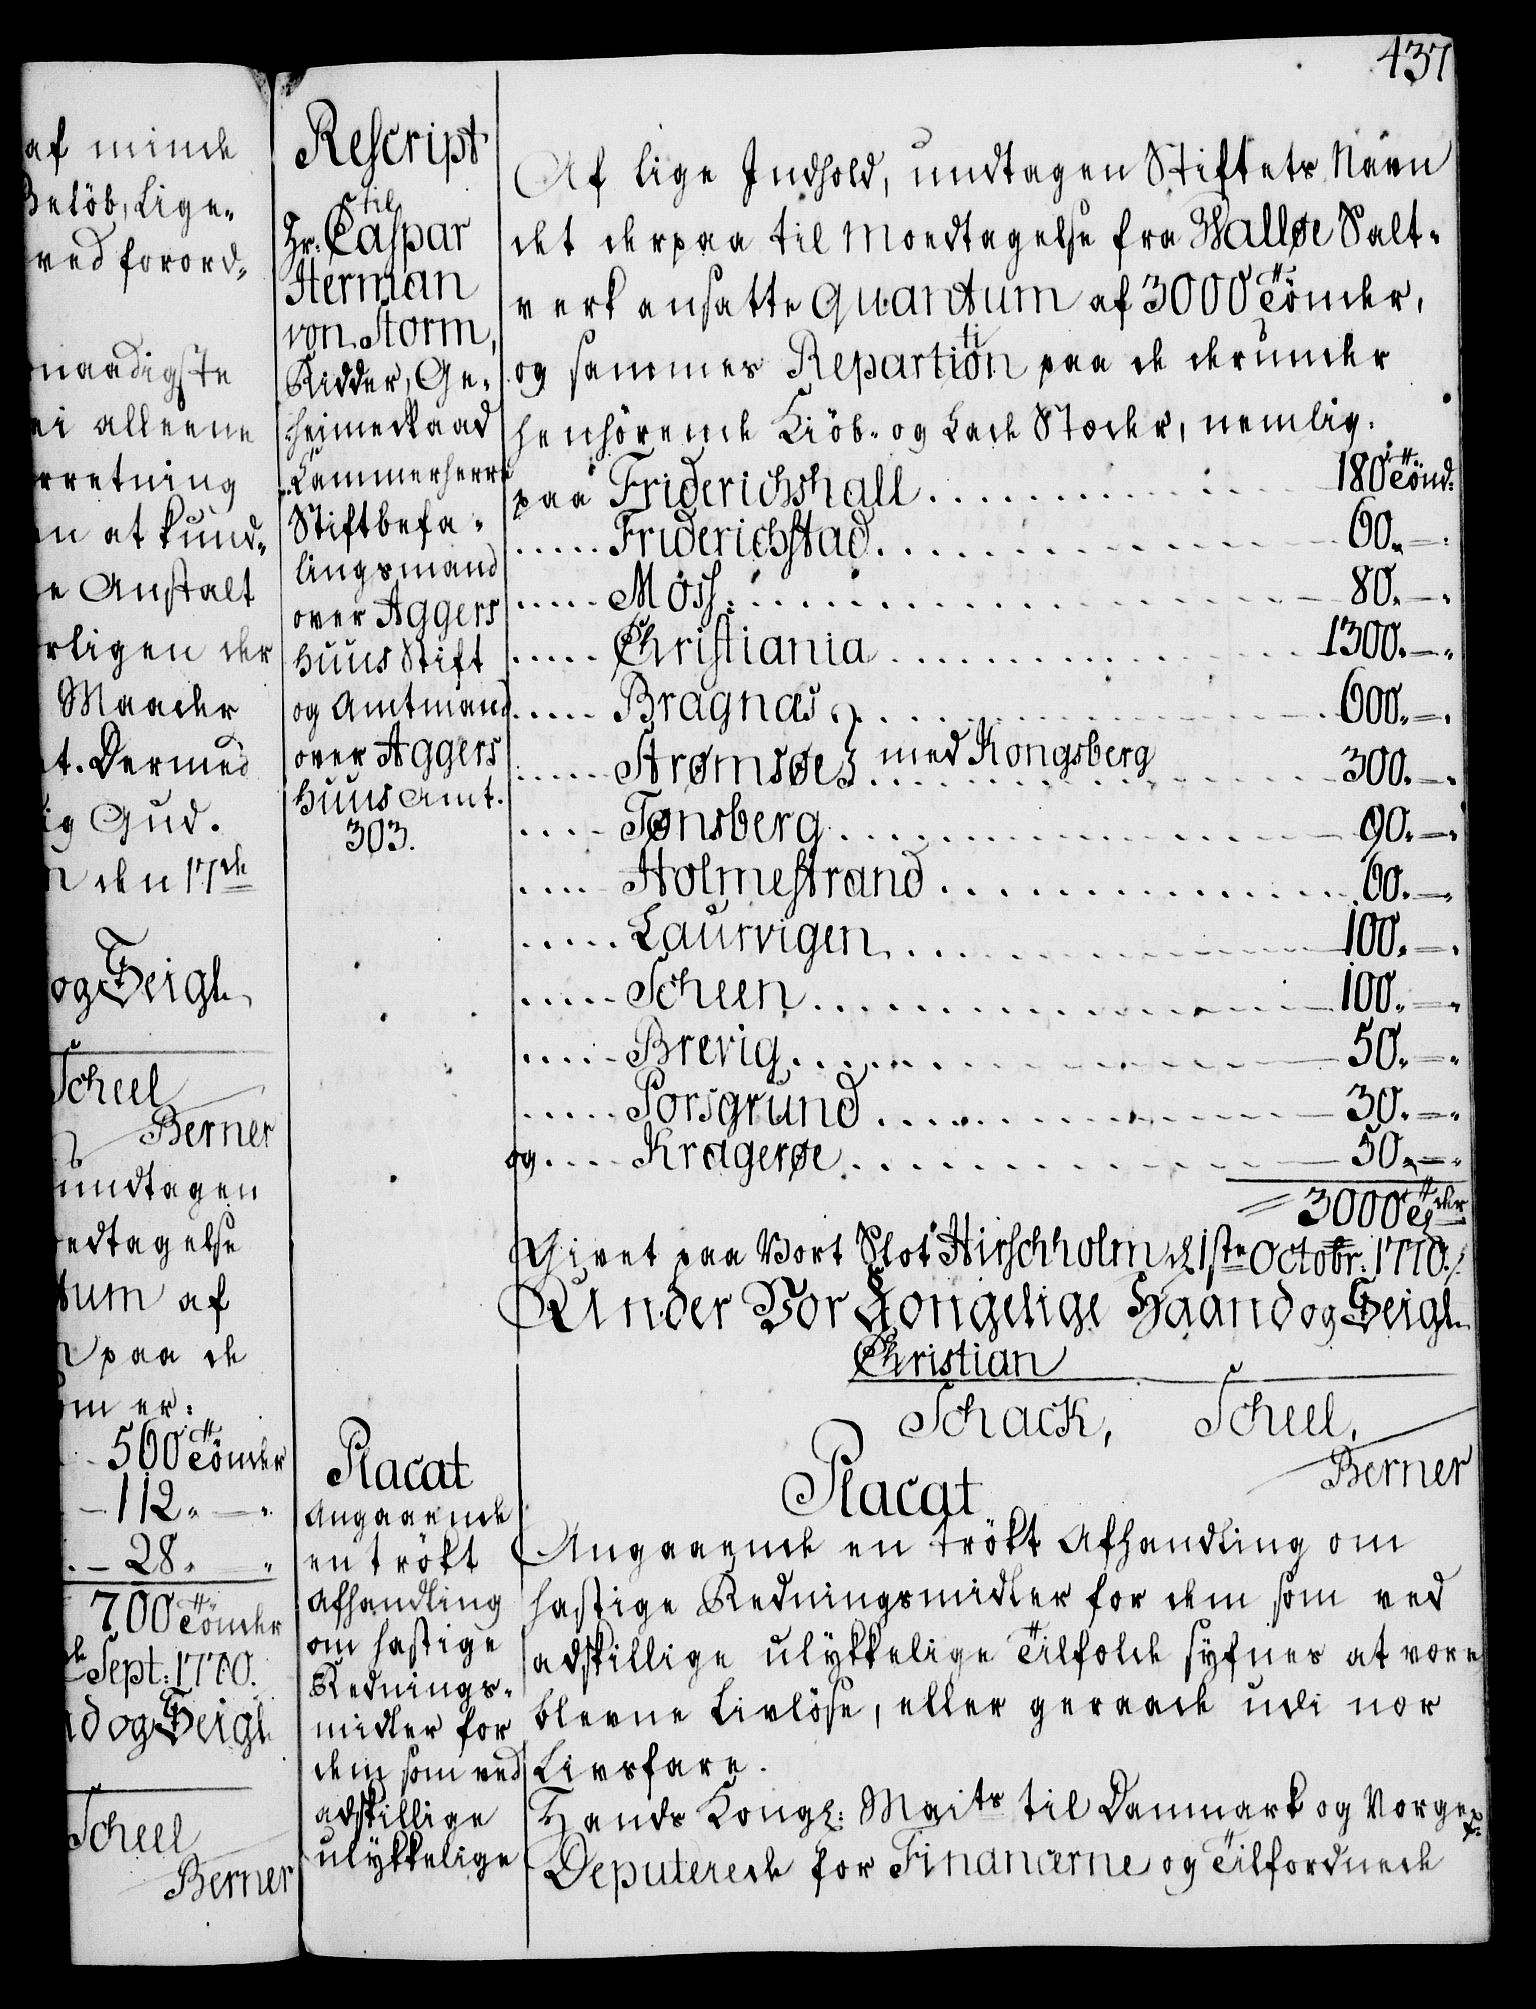 437
af minde
Belöb, Lige-
ved forord-
naadigste
ei alleene
rretning
en at kund-
e Anstalt
rligen der
Maader
t. Dermed
ig Gud.
n den 17de
og Seigl.
Scheel
Berner
undtagen
edtagelse
tum af
n paa de
om er:
560 Tönder
112. — .
28. — .
700 Tönder
Sept: 1770.
d og Seigl.
Scheel
Berner
Rescript
til
Hr: Caspar
Herman
von Storm,
Ridder, Ge-
heimeRaad
Cammerherre
Stiftbefa-
lingsmand
over Aggers
Huus Stift
og Amtmand
over Aggers
Huus Amt.
303.
Placat
Angaaende
en trökt
Afhandling
om hastige
Rednings-
midler for
dem som ved
adskillige
ulykkelige
Af lige Indhold, undtagen Stiftets Navn
det derpaa til Modtagelse fra Walløe Salt-
verk ansatte Quantum af 3000 Tönder,
og sammes Repartition paa de derunder
henhörende Kiöb- og Lade Stæder, nemlig.
paa Friderichshall . . . 180 Tönd:
..... Friderichstad . . . 60. — .
..... Moss . . . 80. — .
..... Christiania . . . 1300. — .
..... Bragnæs . . . 600. — .
..... Strømsøe } med Kongsberg . . . 300. — .
..... Tønsberg . . . 90. — .
..... Holmestrand . . . 60. — .
..... Laurvigen . . . 100. — .
..... Scheen . . . 100. — .
..... Brevig . . . 50. — .
..... Porsgrund . . . 30. — .
og .... Kragerøe . . . 50. — .
3000 Tder
Givet paa Vort Slot Hirschholm d. 1ste Octobr: 1770.
Under Vor Kongelige Haand og Seigl.
Christian
Schack, Scheel,
Berner
Placat
Angaaende en trökt Afhandling om
hastige Redningsmidler for dem som ved
adskillige ulykkelige Tilfælde syfnes at være
blevne Livlöse, eller geraade udi nær
Livsfare.
Hands Kongl: Maits til Danmark og Norge p:
Deputerede for Financerne og Tilfordnede